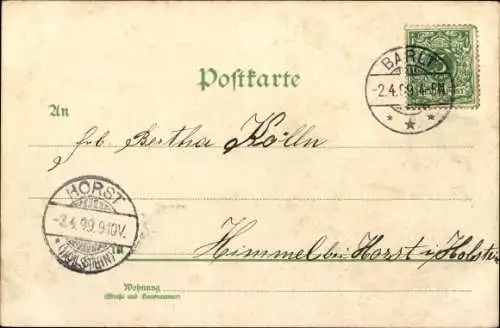 BARLT
-2.4.99.4-5N.
* * *
Postkarte
An
frl. Bertha Kölln
HORST
-3.4.99.9-10V.
* (HOLSTEIN) *
Himmel bei Horst i/Holstein
Wohnung
(Straße und Hausnummer)